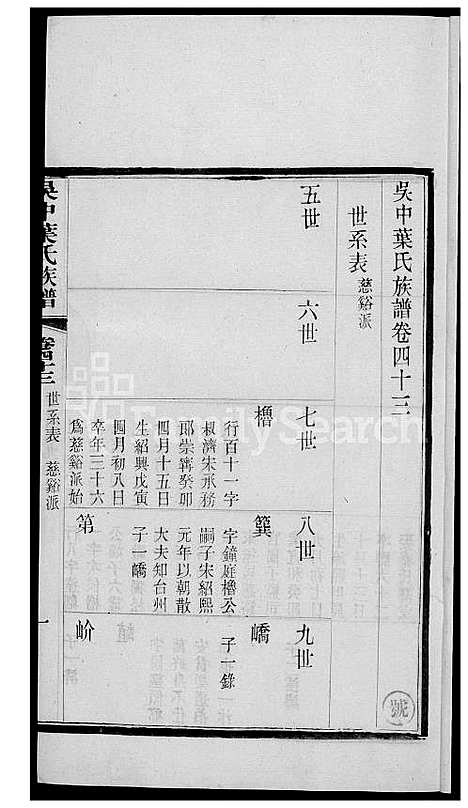 吳中葉氏族譜卷四十三
世系表 慈谿派
五世
六世
七世
八世
九世
櫓
行百十一字
叔濟宋承務
郎崇寧癸卯
四月十五日
生紹興戊寅
四月初八日
卒年三十六
爲慈谿派始
簨
字鐘庭櫓公
嗣子宋紹熙
元年以朝散
大夫知台州
子一嶠
第
嶠
子一錄
岎
吳中葉氏族譜
卷四十三
世系表 慈谿派
一
號
FamilySearch